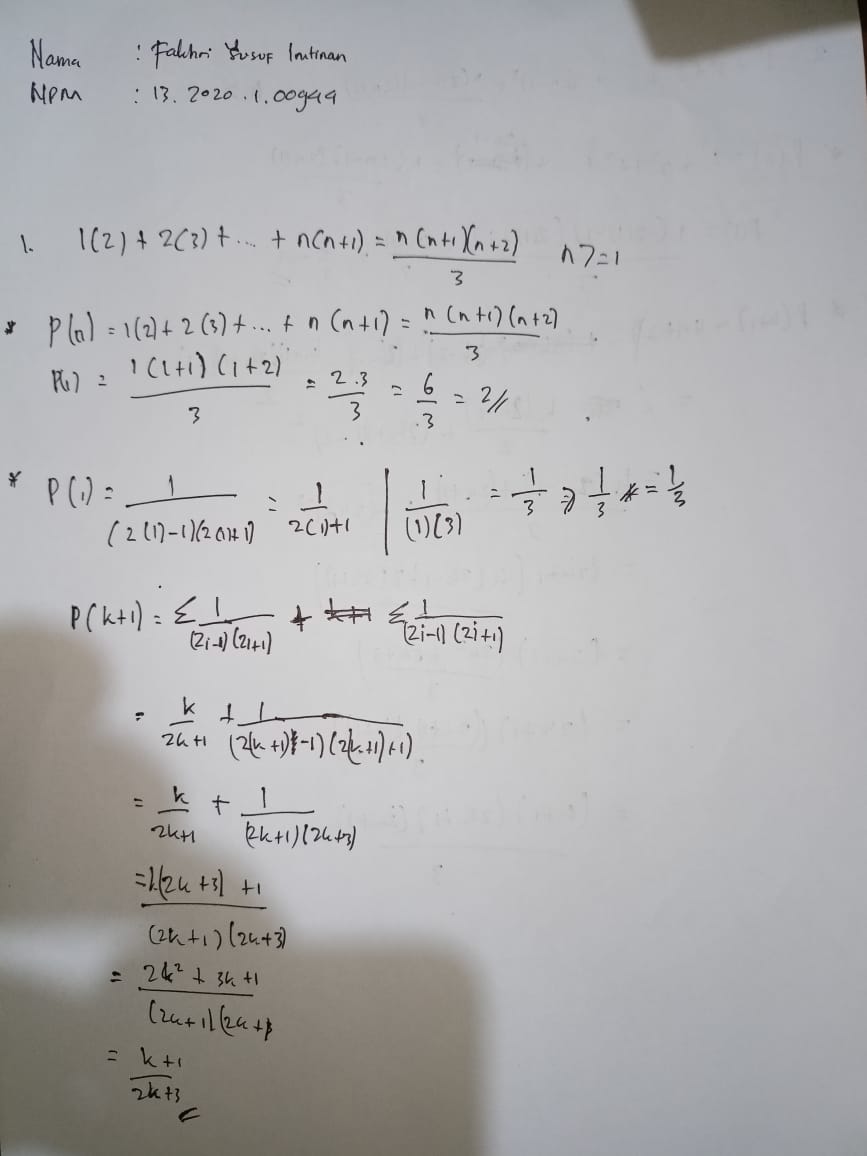 Nama : Fakhri Yusuf Imtinan
NPM : 13.2020.1.00944
1. 1(2) + 2(3) + ... + n(n+1) = n(n+1)(n+2)/3 n>=1
* P(n) = 1(2) + 2(3) + ... + n(n+1) = n(n+1)(n+2)/3
P(1) = 1(1+1)(1+2)/3 = 2.3/3 = 6/3 = 2//
* P(1) = 1/(2(1)-1)(2(1)+1) = 1/2(1)+1 | 1/(1)(3) = 1/3 => 1/3 = 1/3
P(k+1) = Σ 1/(2i-1)(2i+1) + Σ 1/(2i-1)(2i+1)
= k/2k+1 + 1/(2(k+1)-1)(2(k+1)+1)
= k/2k+1 + 1/(2k+1)(2k+3)
= k(2k+3)+1/(2k+1)(2k+3)
= 2k²+3k+1/(2k+1)(2k+3)
= k+1/2k+3